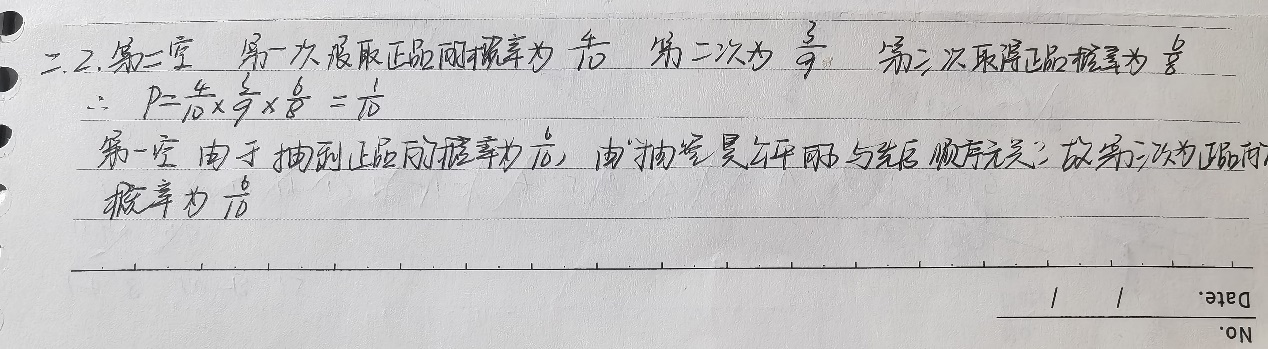 二.2.第二空 第一次没取正品的概率为 4/10 第二次为 3/9 第三次取得正品概率为 6/8
∴ P=4/10×3/9×6/8=1/10
第一空 由于抽到正品的概率为6/10,由"抽签是公平的与先后顺序无关"故第三次为正品的
概率为 6/10
Date. / /
No.